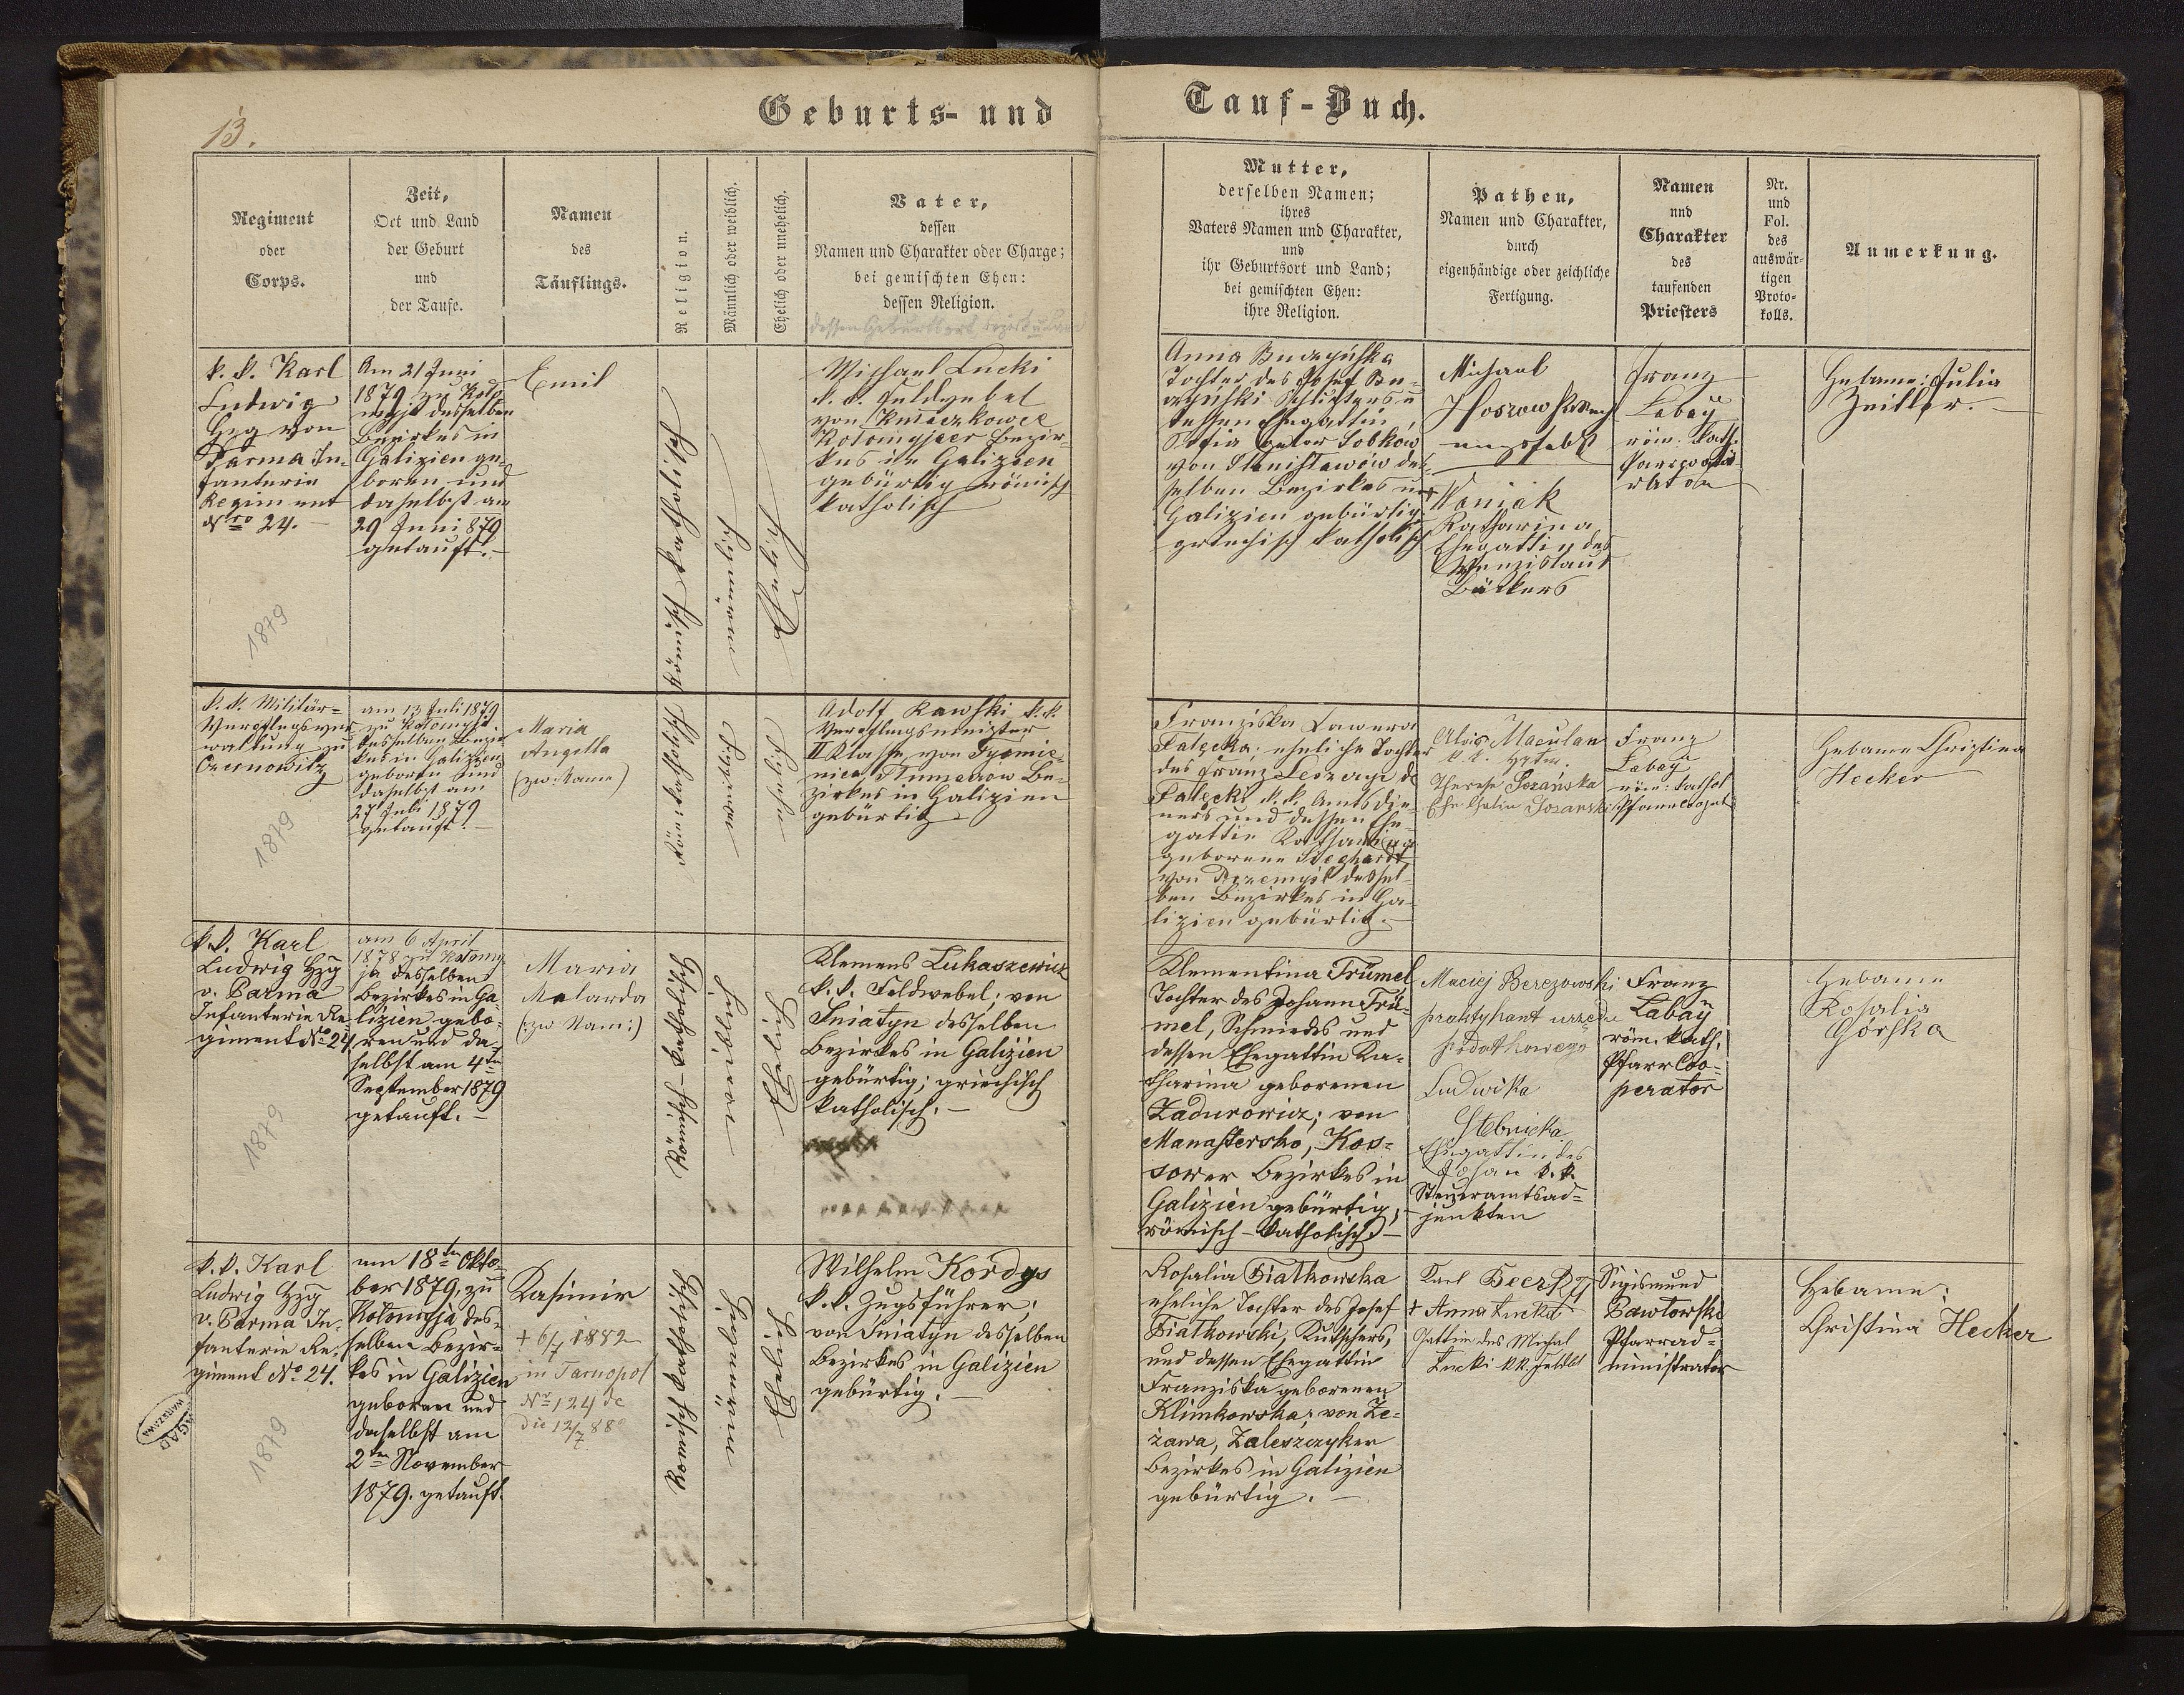 13.
Geburts- und
Tauf-Buch.
Regiment
oder
Corps.
Zeit,
Ort und Land
der Geburt
und
der Taufe.
Namen
des
Täuflings.
Religion.
Männlich oder weiblich.
Ehelich oder unehelich.
Vater,
dessen
Namen und Charakter oder Charge;
bei gemischten Ehen:
dessen Religion.
dessen Geburtsort Bezirk u Land
Mutter,
derselben Namen;
ihres
Vaters Namen und Charakter,
und
ihr Geburtsort und Land;
bei gemischten Ehen:
ihre Religion.
Pathen,
Namen und Charakter,
durch
eigenhändige oder zeichliche
Fertigung.
Namen
und
Charakter
des
taufenden
Priesters
Nr.
und
Fol.
des
auswär-
tigen
Proto-
kolls.
Anmerkung.
k. k. Karl
Ludwig
Hzg von
Parma In-
fanterie
Regiment
Nro 24.-
1879
Am 21 Juni
1879 zu Koło-
myja desselben
Bezirkes in
Galizien ge-
boren und
daselbst am
29 Juni 879
getauft.-
Emil
Römisch katholisch
Männlich
Ehelich
Michael Łucki
k. k. Feldwebel
von Kniaczkowce
Kołomyjaer Bezir-
kes in Galizien
gebürtig römisch
katholisch
Anna Buczyńska
Tochter des Josef Bu-
czyński Schusters u
dessen Ehegattin
Sofia geborn Sobkow
von Stanisławów des-
selben Bezirkes in
Galizien gebürtig
griechisch katholisch
Michael
Woniak
Katharina
Ehegattin des
Wenzislaus
Bäckers
Franz
Labaÿ
röm. kath.
Pfarrcoope-
rator
Hebame: Julia
Zeitler.-
k. k. Militär=
Verpflegsver-
waltung zu
Czernowitz
1879
am 13 Juli 1879
zu Kołomyja
desselben Bezir-
kes in Galizien
geboren und
daselbst am
27 Juli 1879
getauft.-
Maria
Angella
(zw: Name)
Röm: katholisch
Weiblich
Eheliche
Adolf Rawski k.k.
Verpflegsmeister
II Klasse von Tysmie-
nica, Tłumaczow Be-
zirkes in Galizien
gebürtig
Franziska Lawera
Fałęcka eheliche Tochter
des Franz de
Fałęcki k. k. Amtsdie-
ners und dessen Ehe-
gattin Katharina
geborene
von Przemyśl dessel-
ben Bezirkes in Ga-
lizien gebürtig.-
Alois Maculan
k. k.
Therese Sozańska
Sozanski
Franz
Labaÿ
röm: kathol
Pfarrcoopert
Hebame Christina
Hecker
k.k. Karl
Ludwig Hzg
v. Parma
Infanterie Re-
giment No 24
1879
am 6 April
1878 zu Kołomy
ja desselben
Bezirkes in Ga-
lizien gebo-
ren und da-
selbst am 4ten
September 1879
getauft.-
Maria
Medarda
(:zw Nam:)
Römisch-katholisch
Weiblich
Ehelich
Klemens Łukaszewicz
k. k. Feldwebel; von
Śniatyn desselben
Bezirkes in Galizien
gebürtig; griechisch
katholisch.-
Klementina Trümel
Tochter des Johann Trü-
mel, Schmiedes und
dessen Ehegattin Ka-
tharina geborenen
Zadurowicz; von
Manastersko, Kos=
sower Bezirkes in
Galizien gebürtig;
römisch-katholisch.-
Maciej Berezowski
praktykant urzędu
podatkowego
Ludwika
Stebnicka
Ehegattin des
Johan k. k.
Steueramtsad=
junkten
Franz
Labaÿ
röm. kath.
Pfarr Coo=
perator
Hebame
Rosalia
Górska
k. k. Karl
Ludwig Hzg
v. Parma In-
fanterie Re-
giment No 24.
1879
am 18ten Okto-
ber 1879, zu
Kołomyja des-
selben Bezir-
kes in Galizien
geboren und
daselbst am
2ten November
1879. getauft.
Kasimir
+ 6/7 1882
in Tarnopol
No 124 de
die 12/7 88
Römisch katholisch
Männlich
Ehelich
Wilhelm Kordys
k. k. Zugsführer;
von Śniatyn desselben
Bezirkes in Galizien
gebürtig.-
Rosalia Białkowska
eheliche Tochter des Josef
Białkowski, Kutschers,
und dessen Ehegattin
Franziska geborenen
Klimkowska; von Że-
żawa, Zaleszczyker
Bezirkes in Galizien
gebürtig.-
Karl
+ Anna Łucka
Gattin des Michal
Łucki kk. Feldbl
Sigismund
Pawłowski
Pfarrad=
ministrator
Hebame:
Christina Hecker
AGAD
WARSZAWA